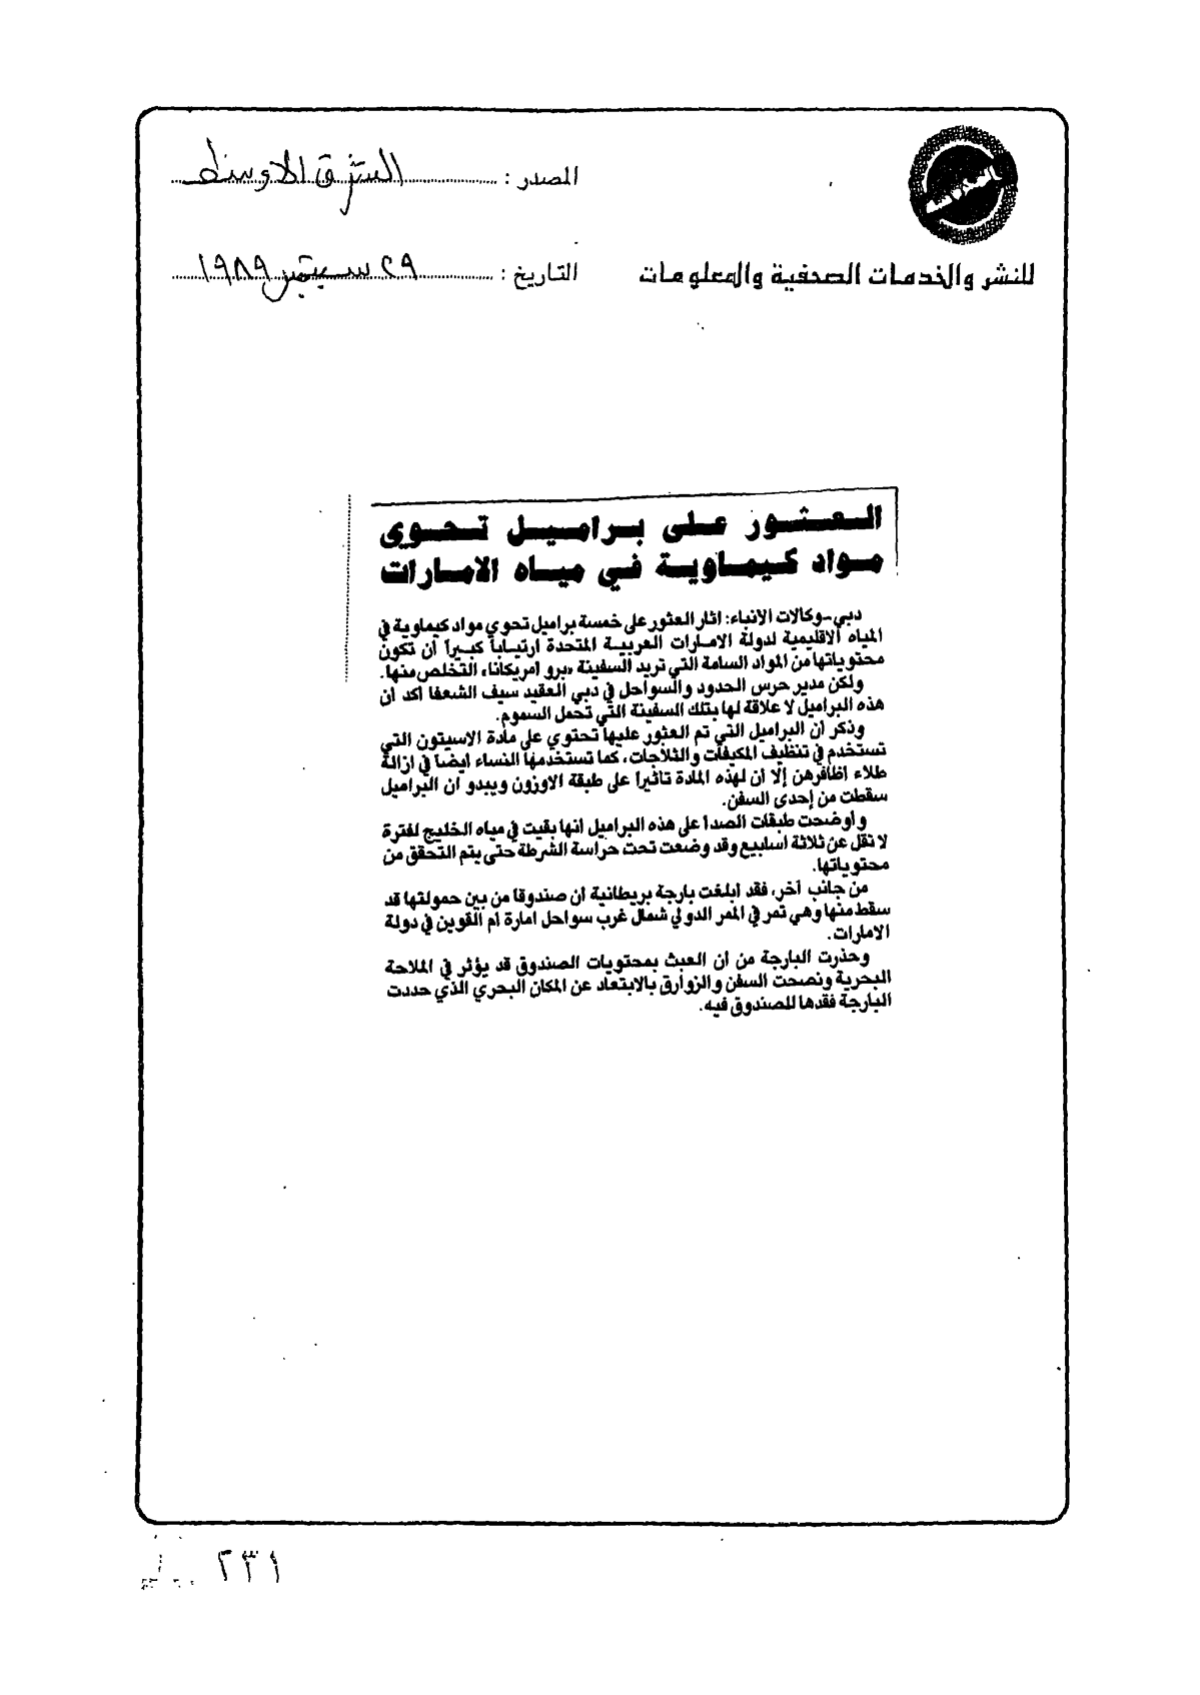 المصدر : الشرق الاوسط
التاريخ : ٢٩ سبتمبر ١٩٨٩
للنشر والخدمات الصحفية والمعلومات
العثور على براميل تحوى
مواد كيماوية في مياه الامارات
دبي-وكالات الانباء: اثار العثور على خمسة براميل تحوي مواد كيماوية في
المياه الاقليمية لدولة الامارات العربية المتحدة ارتياباً كبيراً ان تكون
محتوياتها من المواد السامة التي تريد السفينة «برو امريكانا» التخلص منها.
ولكن مدير حرس الحدود والسواحل في دبي العقيد سيف الشعفا اكد ان
هذه البراميل لا علاقة لها بتلك السفينة التي تحمل السموم.
وذكر ان البراميل التي تم العثور عليها تحتوي على مادة الاسيتون التي
تستخدم في تنظيف المكيفات والثلاجات، كما تستخدمها النساء ايضاً في ازالة
طلاء اظافرهن إلا ان لهذه المادة تاثيراً على طبقة الاوزون ويبدو ان البراميل
سقطت من إحدى السفن.
واوضحت طبقات الصدا على هذه البراميل انها بقيت في مياه الخليج لفترة
لا تقل عن ثلاثة اسابيع وقد وضعت تحت حراسة الشرطة حتى يتم التحقق من
محتوياتها.
من جانب آخر، فقد ابلغت بارجة بريطانية ان صندوقا من بين حمولتها قد
سقط منها وهي تمر في الممر الدولي شمال غرب سواحل امارة ام القوين في دولة
الامارات.
وحذرت البارجة من ان العبث بمحتويات الصندوق قد يؤثر في الملاحة
البحرية ونصحت السفن والزوارق بالابتعاد عن المكان البحري الذي حددت
البارجة فقدها للصندوق فيه.
٢٣١